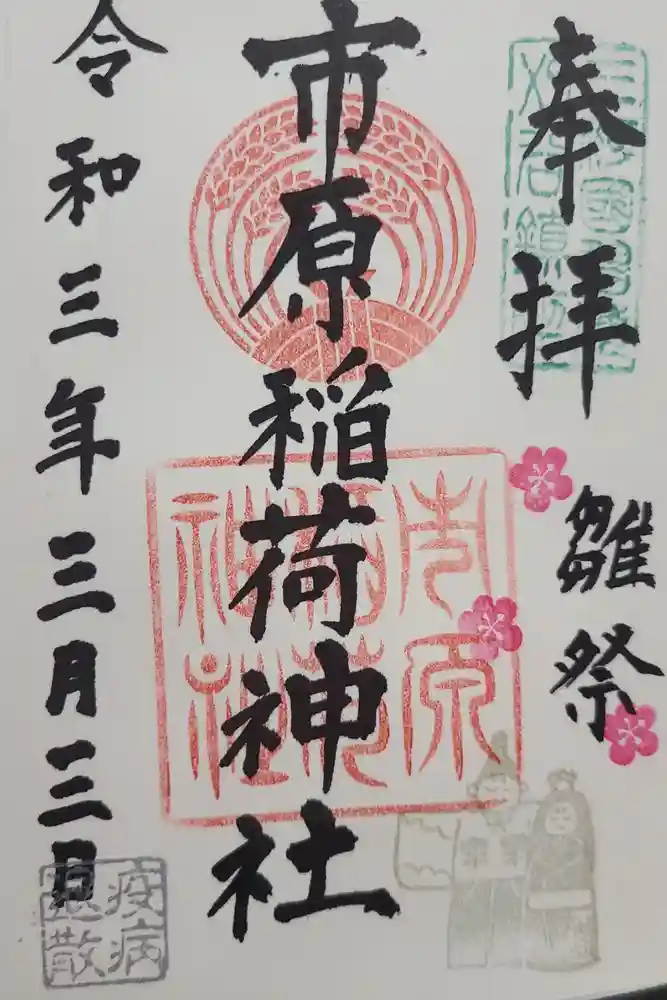 奉拝
雛祭
市原稲荷神社
市原稲荷神社
令和三年三月三日
疫病
退散